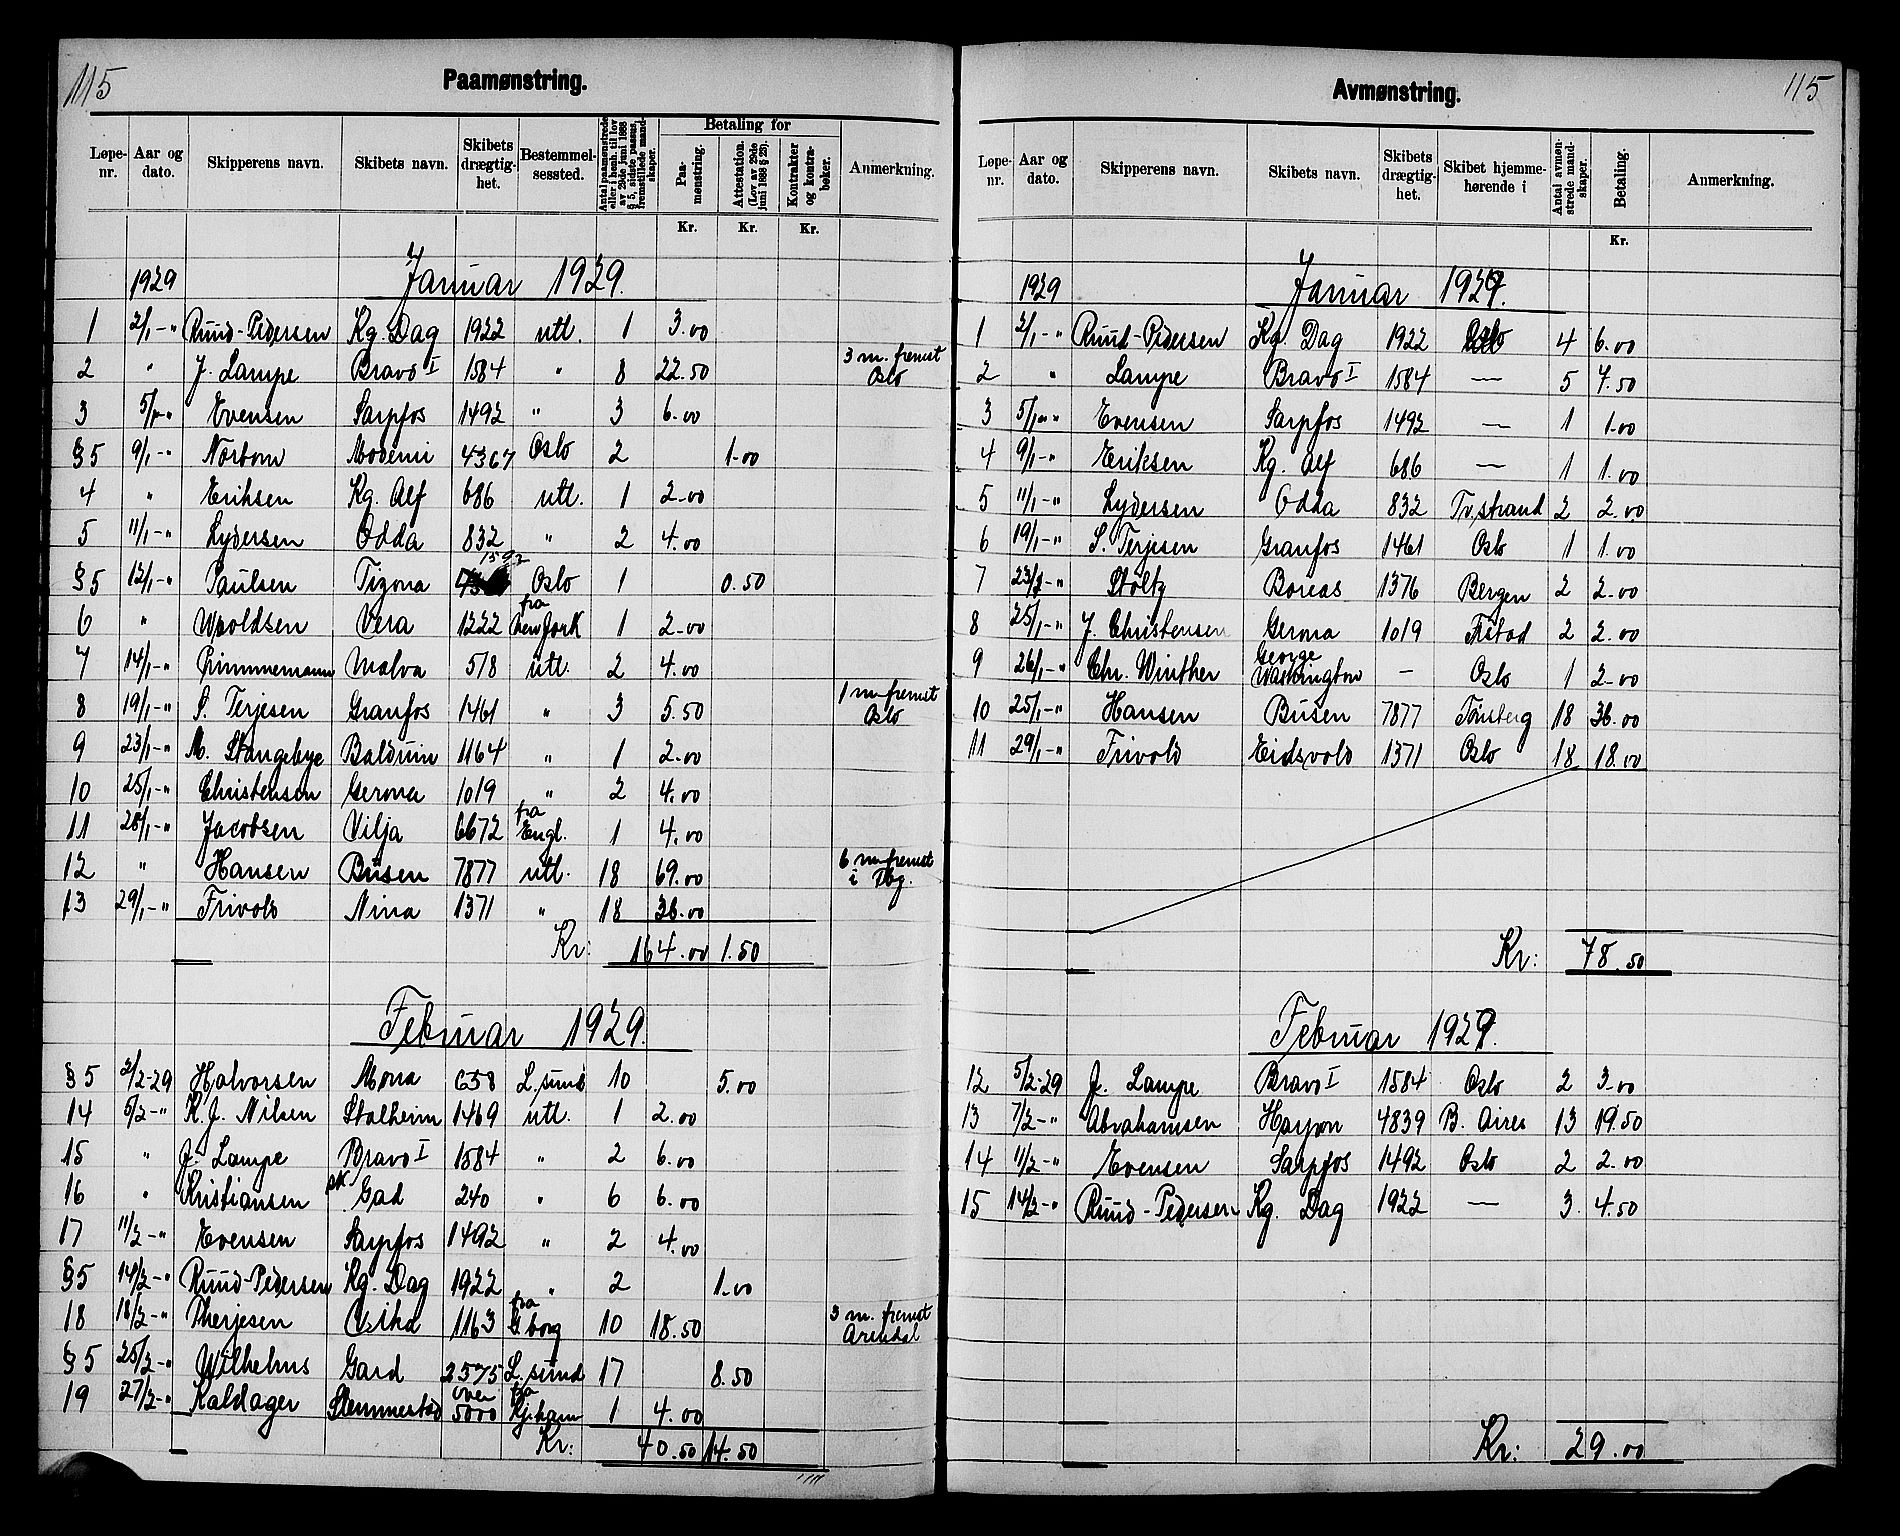 115
Paamønstring.
Løpe-nr. Aar og dato. Skipperens navn. Skibets navn. Skibets drægtig-het. Bestemmel-sessted. Antal paamønstrede eller i henh. til lov av 29de juni 1888 § 5, sidste passus, fremstillede mand-skaper. Betaling for Paa-mønstring. Attestation. (Lov av 29de juni 1888 § 23). Kontrakter og kontra-bøker. Anmerkning.
Kr. Kr. Kr.
1929 Januar 1929.
1 2/1-" Ruud-Pedersen Kg. Dag 1922 utl. 1 3.00
2 " J. Lampe Bravo I 1584 " 8 22.50 3 m. fremst Oslo
3 5/1-" Evensen Sarpfos 1492 " 3 6.00
§5 9/1-" Norbom Modemi 4367 Oslo 2 1.00
4 " Eriksen Kg. Alf 686 utl. 1 2.00
5 11/1-" Lydersen Odda 832 " 2 4.00
§5 12/1-" Paulsen Tizona 1592 Oslo 1 0.50
6 " Woldsen Vera 1222 fra New York 1 2.00
7 14/1-" Malva 578 utl. 2 4.00
8 19/1-" S. Terjesen Granfos 1461 " 3 5.50 1 m fremst Oslo
9 23/1-" M. Stangebye Balduin 1164 " 1 2.00
10 25/1-" Christensen Gerona 1019 " 2 4.00
11 28/1-" Jacobsen Vilja 6672 fra Engl. 1 4.00
12 " Hansen Busen 7877 utl. 18 69.00 6 m fremst i Tbg.
13 29/1-" Frivold Nina 1371 " 18 36.00
Kr: 164.00 1.50
Februar 1929.
§5 2/2-29 Halvorsen Mona 658 L. sund 10 5.00
14 5/2-" K. J. Nilsen Stalheim 1469 utl. 1 2.00
15 " J. Lampe Bravo I 1584 " 2 6.00
16 " Kristiansen sk. Gad 240 " 6 6.00
17 11/2-" Evensen Sarpfos 1492 " 2 4.00
§5 14/2-" Ruud-Pedersen Kg. Dag 1922 " 2 1.00
18 18/2-" Therjesen 1163 fra G.borg 10 18.50 3 m. fremst Arendal
§5 25/2-" Wilhelms Gard 2575 L. sund 17 8.50
19 27/2-" Kaldager Slemmestad over 5000 fra Kj.havn 1 4.00
Kr: 40.50 14.50
115
Avmønstring.
Løpe-nr. Aar og dato. Skipperens navn. Skibets navn. Skibets drægtig-het. Skibet hjemme-hørende i Antal avmøn-strede mand-skaper. Betaling. Anmerkning.
Kr.
1929 Januar 1929.
1 2/1-" Ruud-Pedersen Kg. Dag 1922 Oslo 4 6.00
2 " Lampe Bravo I 1584 — 5 7.50
3 5/1-" Evensen Sarpfos 1492 — 1 1.00
4 9/1-" Eriksen Kg. Alf 686 — 1 1.00
5 11/1-" Lydersen Odda 832 Tv.strand 2 2.00
6 19/1-" S. Terjesen Granfos 1461 Oslo 1 1.00
7 23/1-" Stoltz Boreas 1376 Bergen 2 2.00
8 25/1-" J. Christensen Gerona 1019 F.stad 2 2.00
9 26/1-" Chr. Winther George Washington - Oslo 1 2.00
10 25/1-" Hansen Busen 7877 Tønsberg 18 36.00
11 29/1-" Frivold Eidsvold 1371 Oslo 18 18.00
Kr: 78.50
Februar 1929.
12 5/2-29 J. Lampe Bravo I 1584 Oslo 2 3.00
13 7/2-" Abrahamsen 4839 B. Aires 13 19.50
14 11/2-" Evensen Sarpfos 1492 Oslo 2 2.00
15 14/2-" Ruud-Pedersen Kg. Dag 1922 — 3 4.50
Kr: 29.00